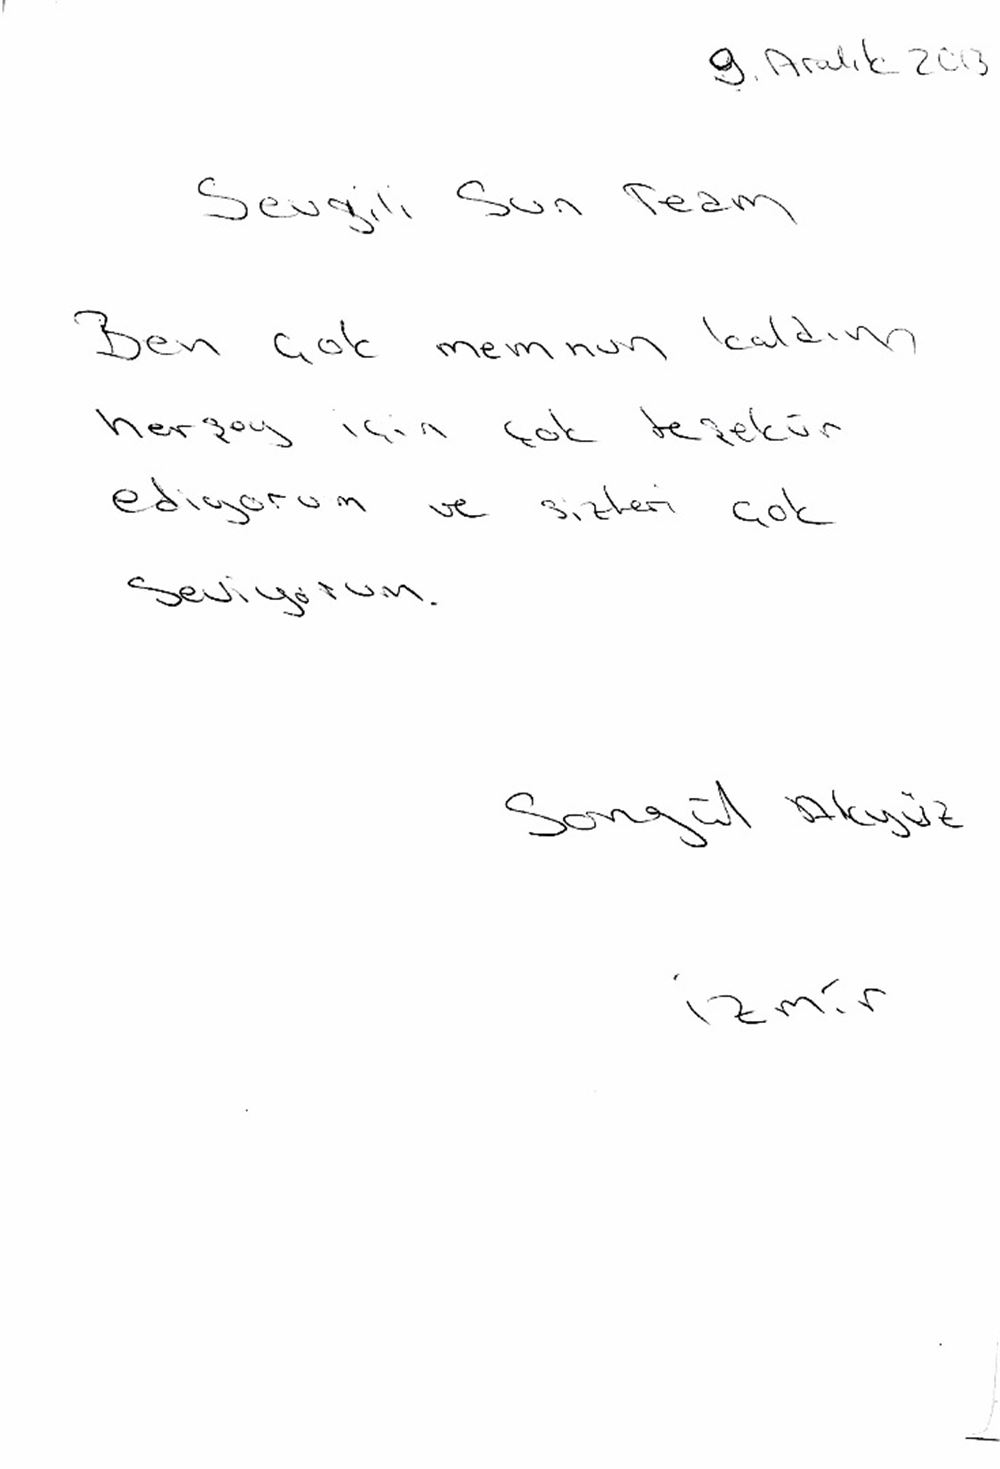 9. Aralık 2013
Sevgili Sun Team
Ben çok memnun kaldım
herşey için çok teşekür
ediyorum ve sizleri çok
seviyorum.
Songül Akyüz
İzmir